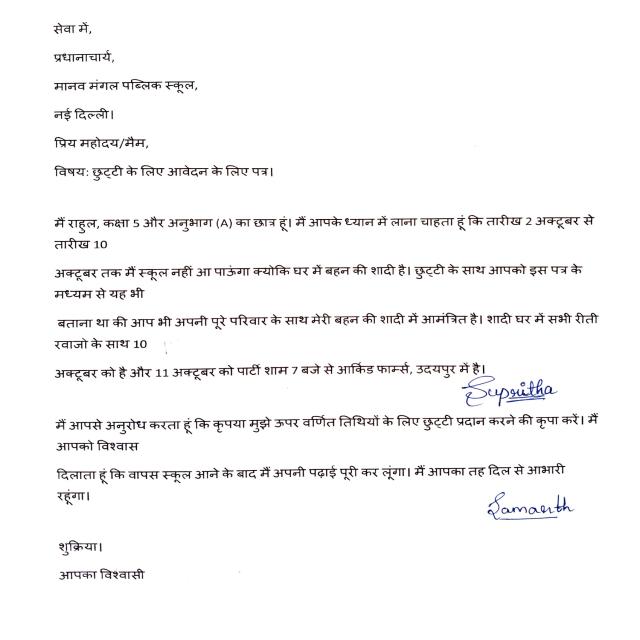 सेवा में,
प्रधानाचार्य,
मानव मंगल पब्लिक स्कूल,
नई दिल्ली।
प्रिय महोदय/मैम,
विषय: छुट्टी के लिए आवेदन के लिए पत्र।
मैं राहुल, कक्षा 5 और अनुभाग (A) का छात्र हूं। मैं आपके ध्यान में लाना चाहता हूं कि तारीख 2 अक्टूबर से
तारीख 10
अक्टूबर तक मैं स्कूल नहीं आ पाऊंगा क्योकि घर में बहन की शादी है। छुट्टी के साथ आपको इस पत्र के
मध्यम से यह भी
बताना था की आप भी अपनी पूरे परिवार के साथ मेरी बहन की शादी में आमंत्रित है। शादी घर में सभी रीती
रवाजो के साथ 10
अक्टूबर को है और 11 अक्टूबर को पार्टी शाम 7 बजे से आर्किड फार्म्स, उदयपुर में है।
Supritha
मैं आपसे अनुरोध करता हूं कि कृपया मुझे ऊपर वर्णित तिथियों के लिए छुट्टी प्रदान करने की कृपा करें। मैं
आपको विश्वास
दिलाता हूं कि वापस स्कूल आने के बाद मैं अपनी पढ़ाई पूरी कर लूंगा। मैं आपका तह दिल से आभारी
रहूंगा।
Samarth
शुक्रिया।
आपका विश्वासी